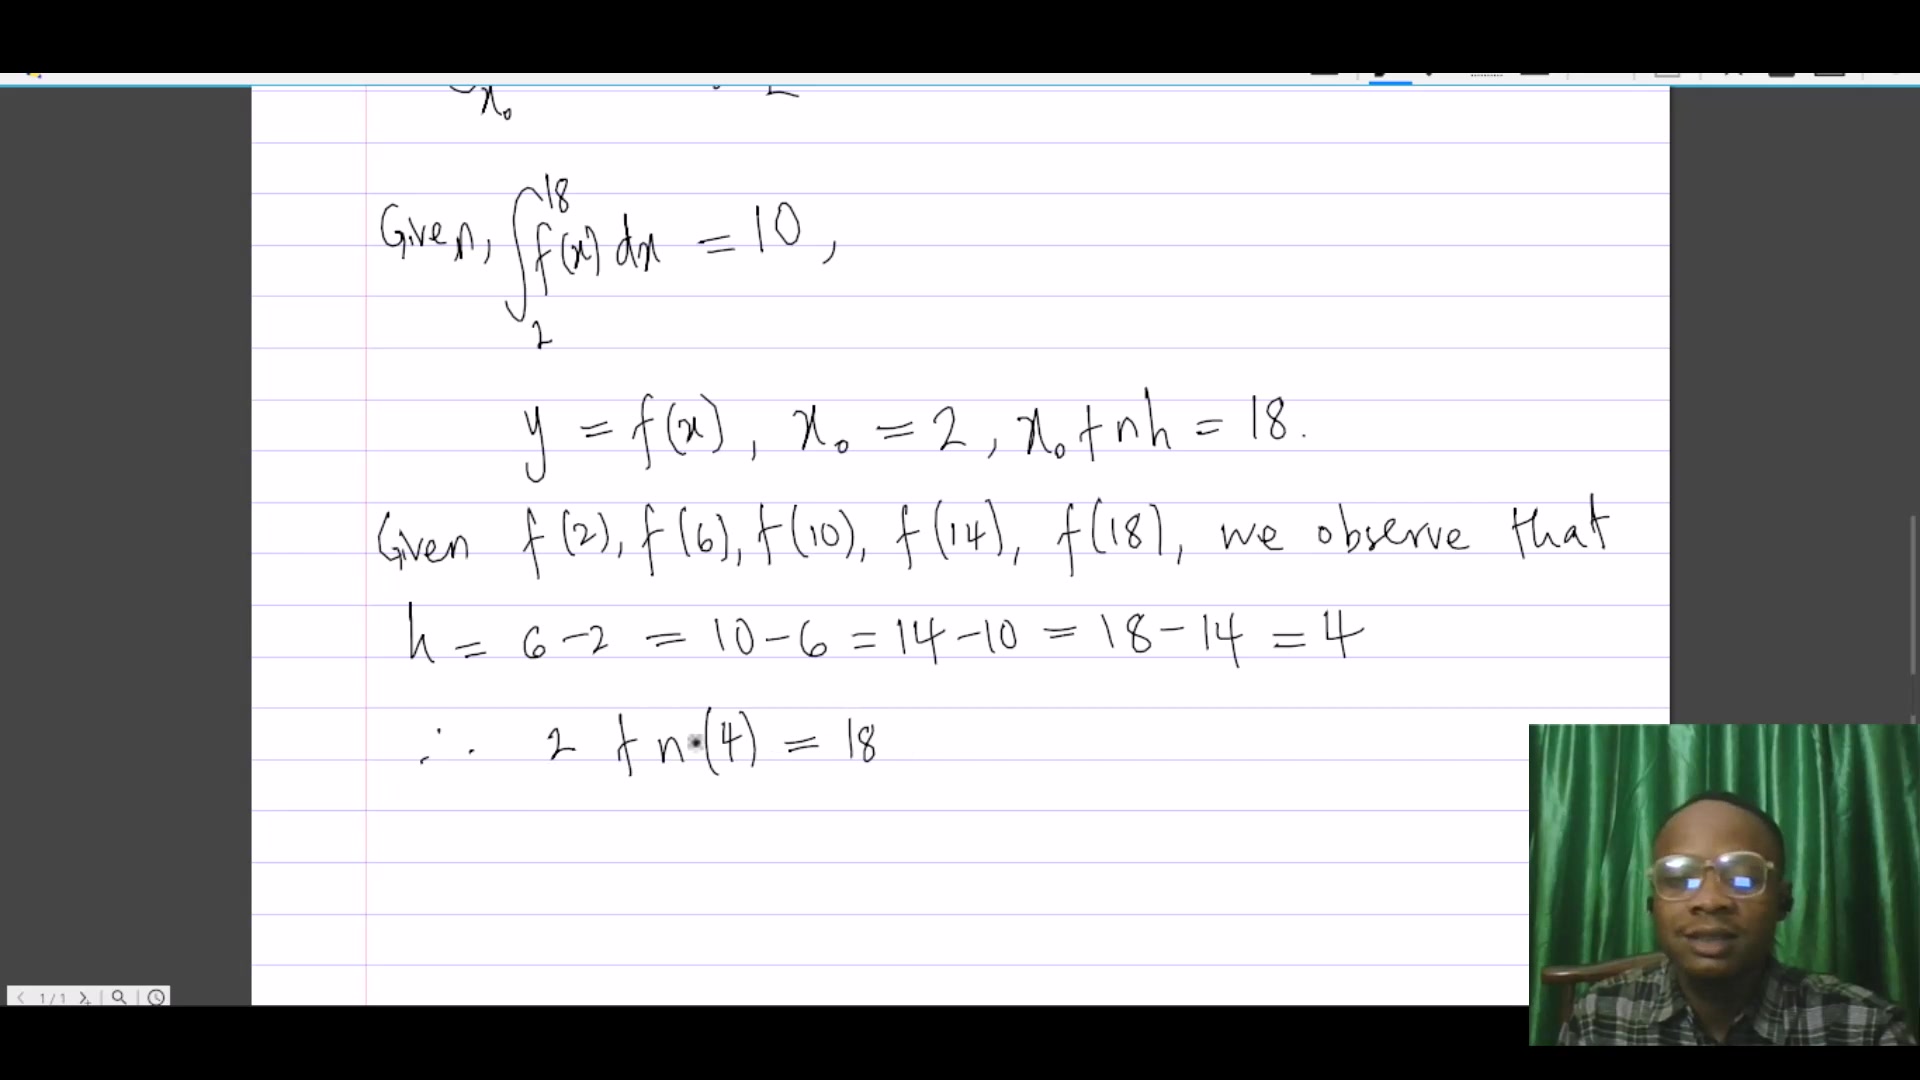 x₀ 2
18
Given, ∫f(x) dx = 10,
2
y = f(x), x₀ = 2, x₀+nh = 18.
Given f(2), f(6), f(10), f(14), f(18), we observe that
h = 6-2 = 10-6 = 14-10 = 18-14 = 4
∴ 2 + n·(4) = 18
1/1